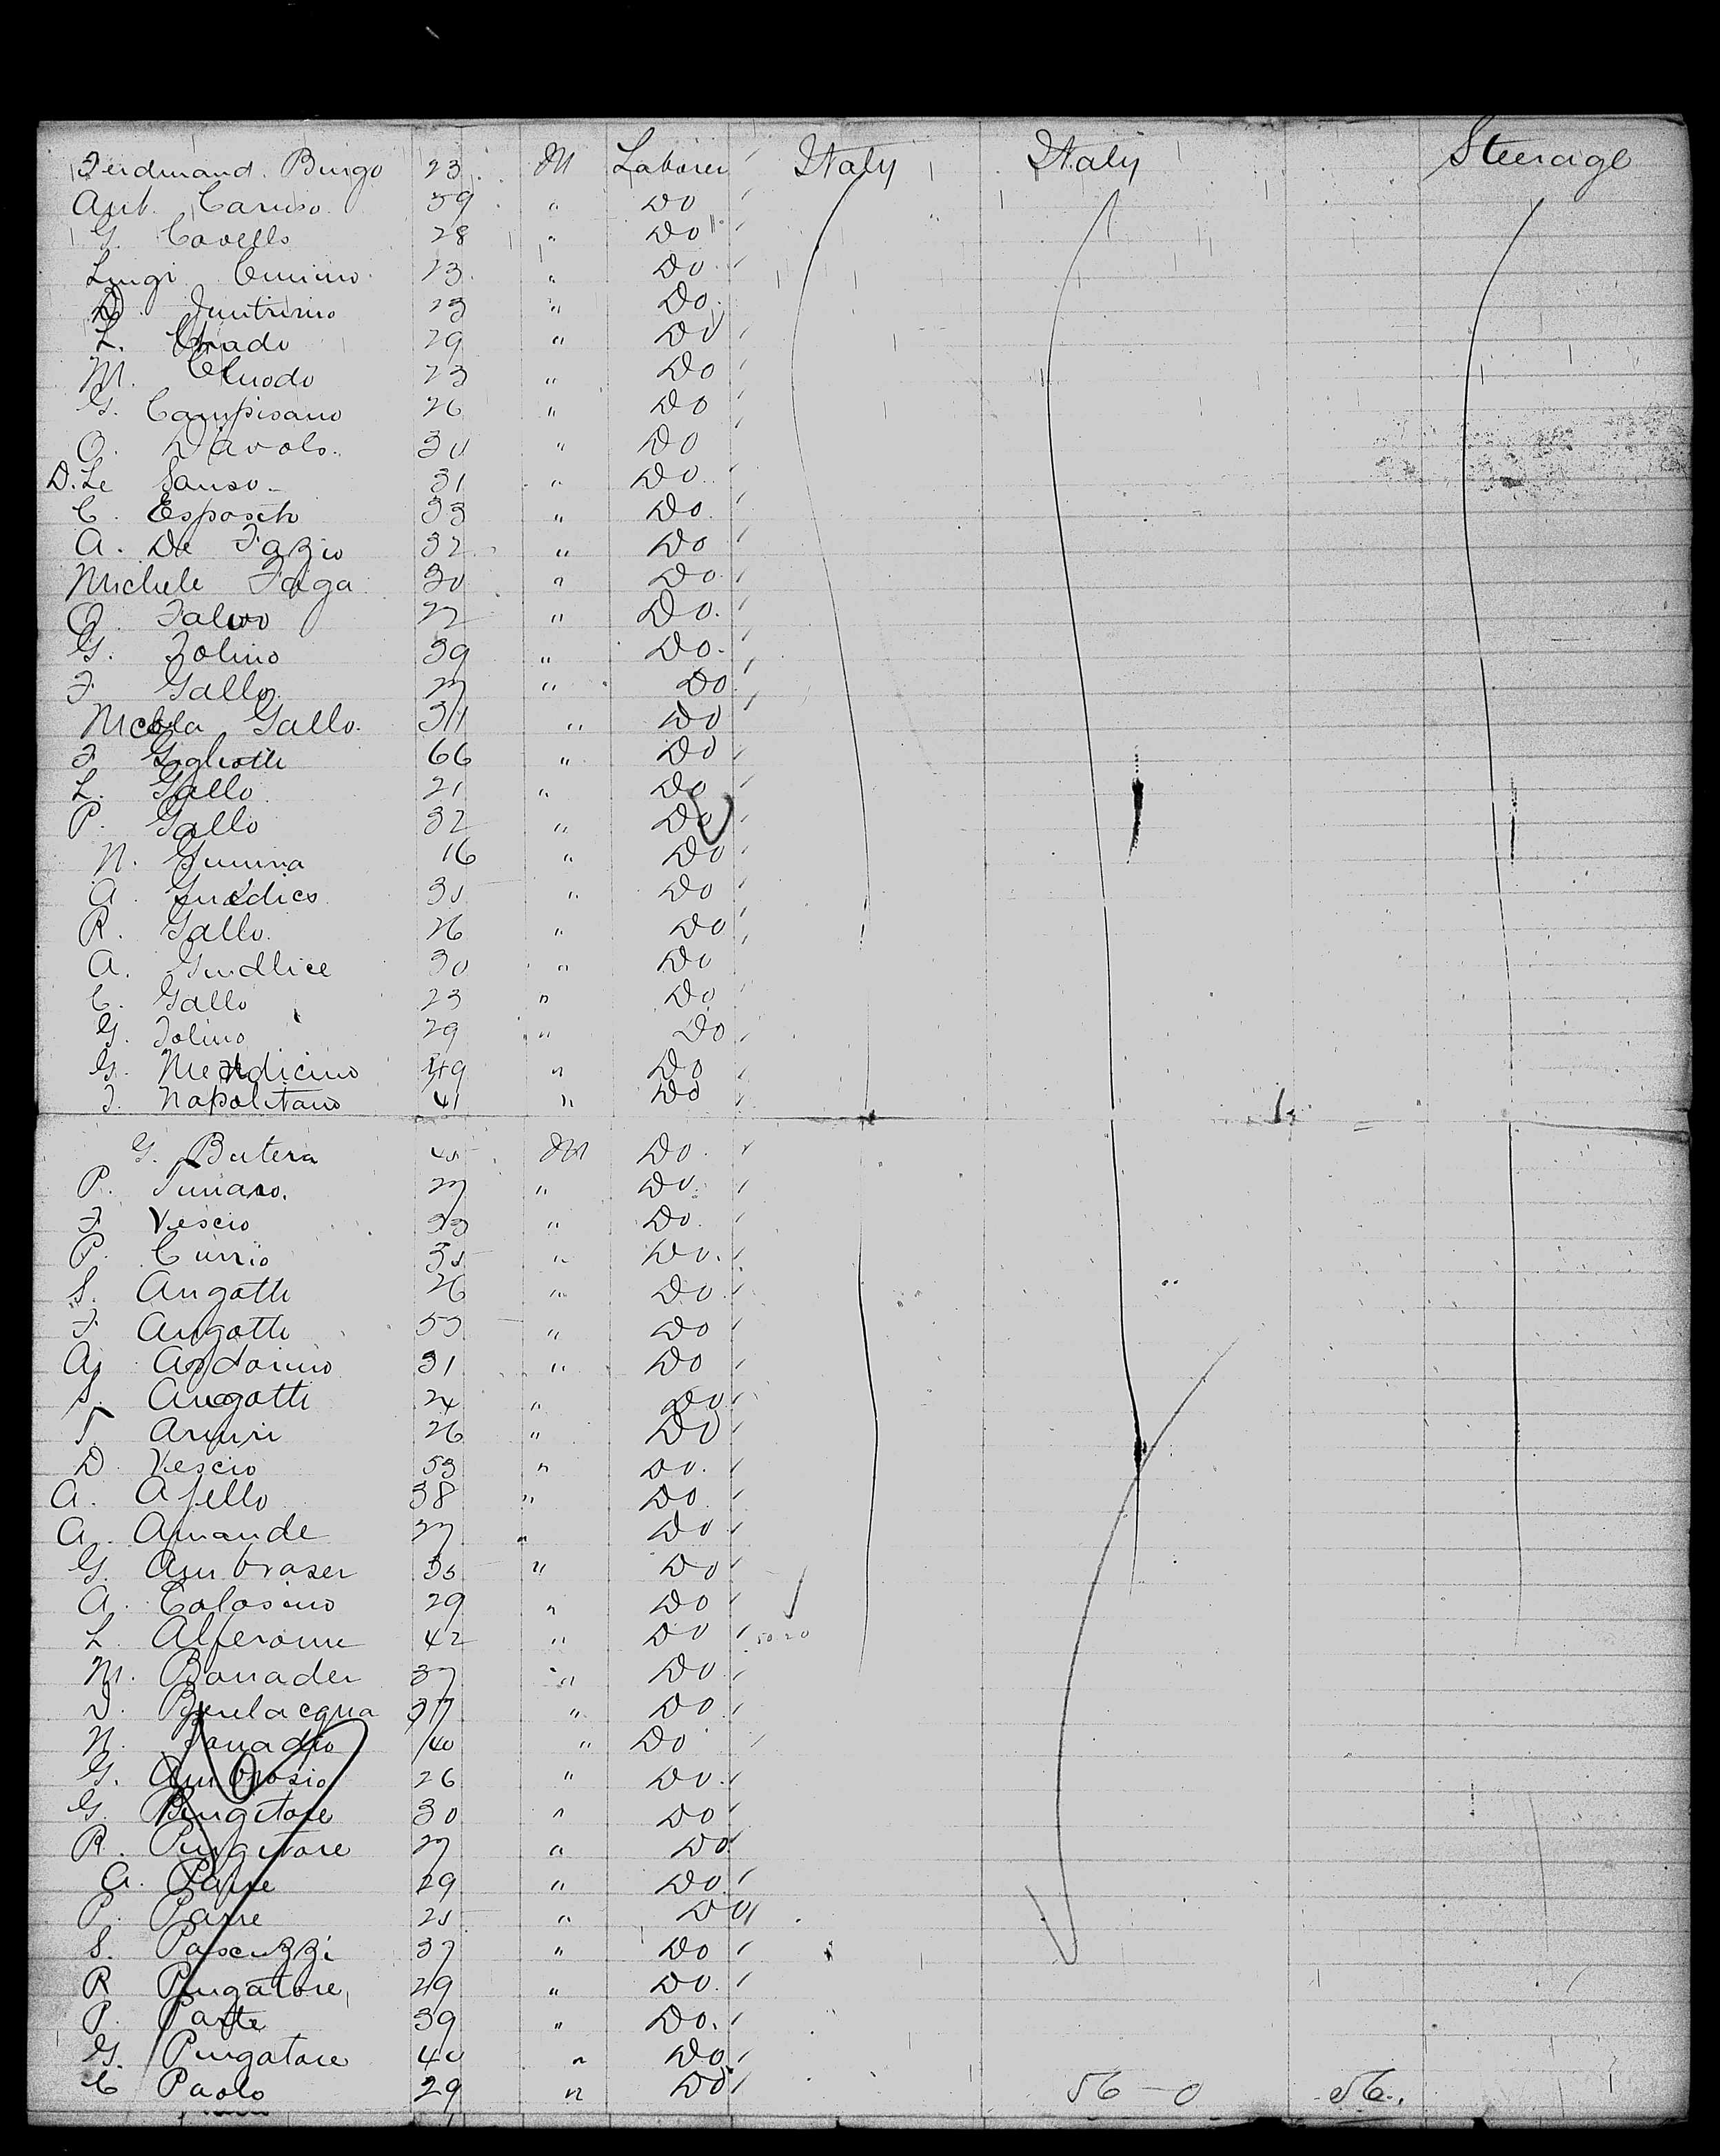 Ferdinand. Bingo 23 M Laborer Italy Italy Steerage
Ant. Caruso. 39 " Do
G. Covello 28 " Do
Luigi Cimino. 23 " Do.
D 23 " Do.
L. Chiado 29 " Do
M. 23 " Do
G. Campisano 26 " Do
A. Diavolo. 30 " Do
D. Le Sanso 31 " Do.
C. Esposito 33 " Do.
A. De Fazio 32 " Do
Michele Faga 30 " Do.
A. Falvo 22 " Do.
G. Folino 39 " Do.
F. Gallo 27 " Do
Nicola Gallo. 34 " Do
F Gigliotti 66 " Do
L. Gallo 21 " Do
P. Gallo 32 " Do
N. 16 " Do
A. 35 " Do
R. Gallo. 26 " Do
A. Guidlice 30 " Do
C. Gallo 23 " Do
G. Folino 29 " Do
G. Mendicino 49 " Do
F. Napolitano 41 " Do
G. Butera 45 M Do.
P. 27 " Do.
F Vescio 33 " Do.
P. Currio 35 " Do.
S. Angotti 26 " Do.
F Angotti 55 " Do
A. Ardonino 31 " Do
S. Angotti 24 " Do
T. Aruri 26 " Do
D. Vescio 53 " Do.
A. Apello 38 " Do.
A. Amande 27 " Do
G. Ambraser 35 " Do
A. Colosino 29 " Do
L. Alferome 42 " Do
M. Bonader 37 " Do
D. Bevelacqua 37 " Do
N. 40 " Do
G. Ambrosio 26 " Do.
G. Pingitore 30 " Do
R. Pingitore 27 " Do
A. Parre 29 " Do.
P. Parre 25 " Do
S. Pascuzzi 37 " Do
R Pingatore 29 " Do.
P. Parte 39 " Do.
G. Pingatore 40 " Do
C Paolo 29 " Do 56 – 0 56.